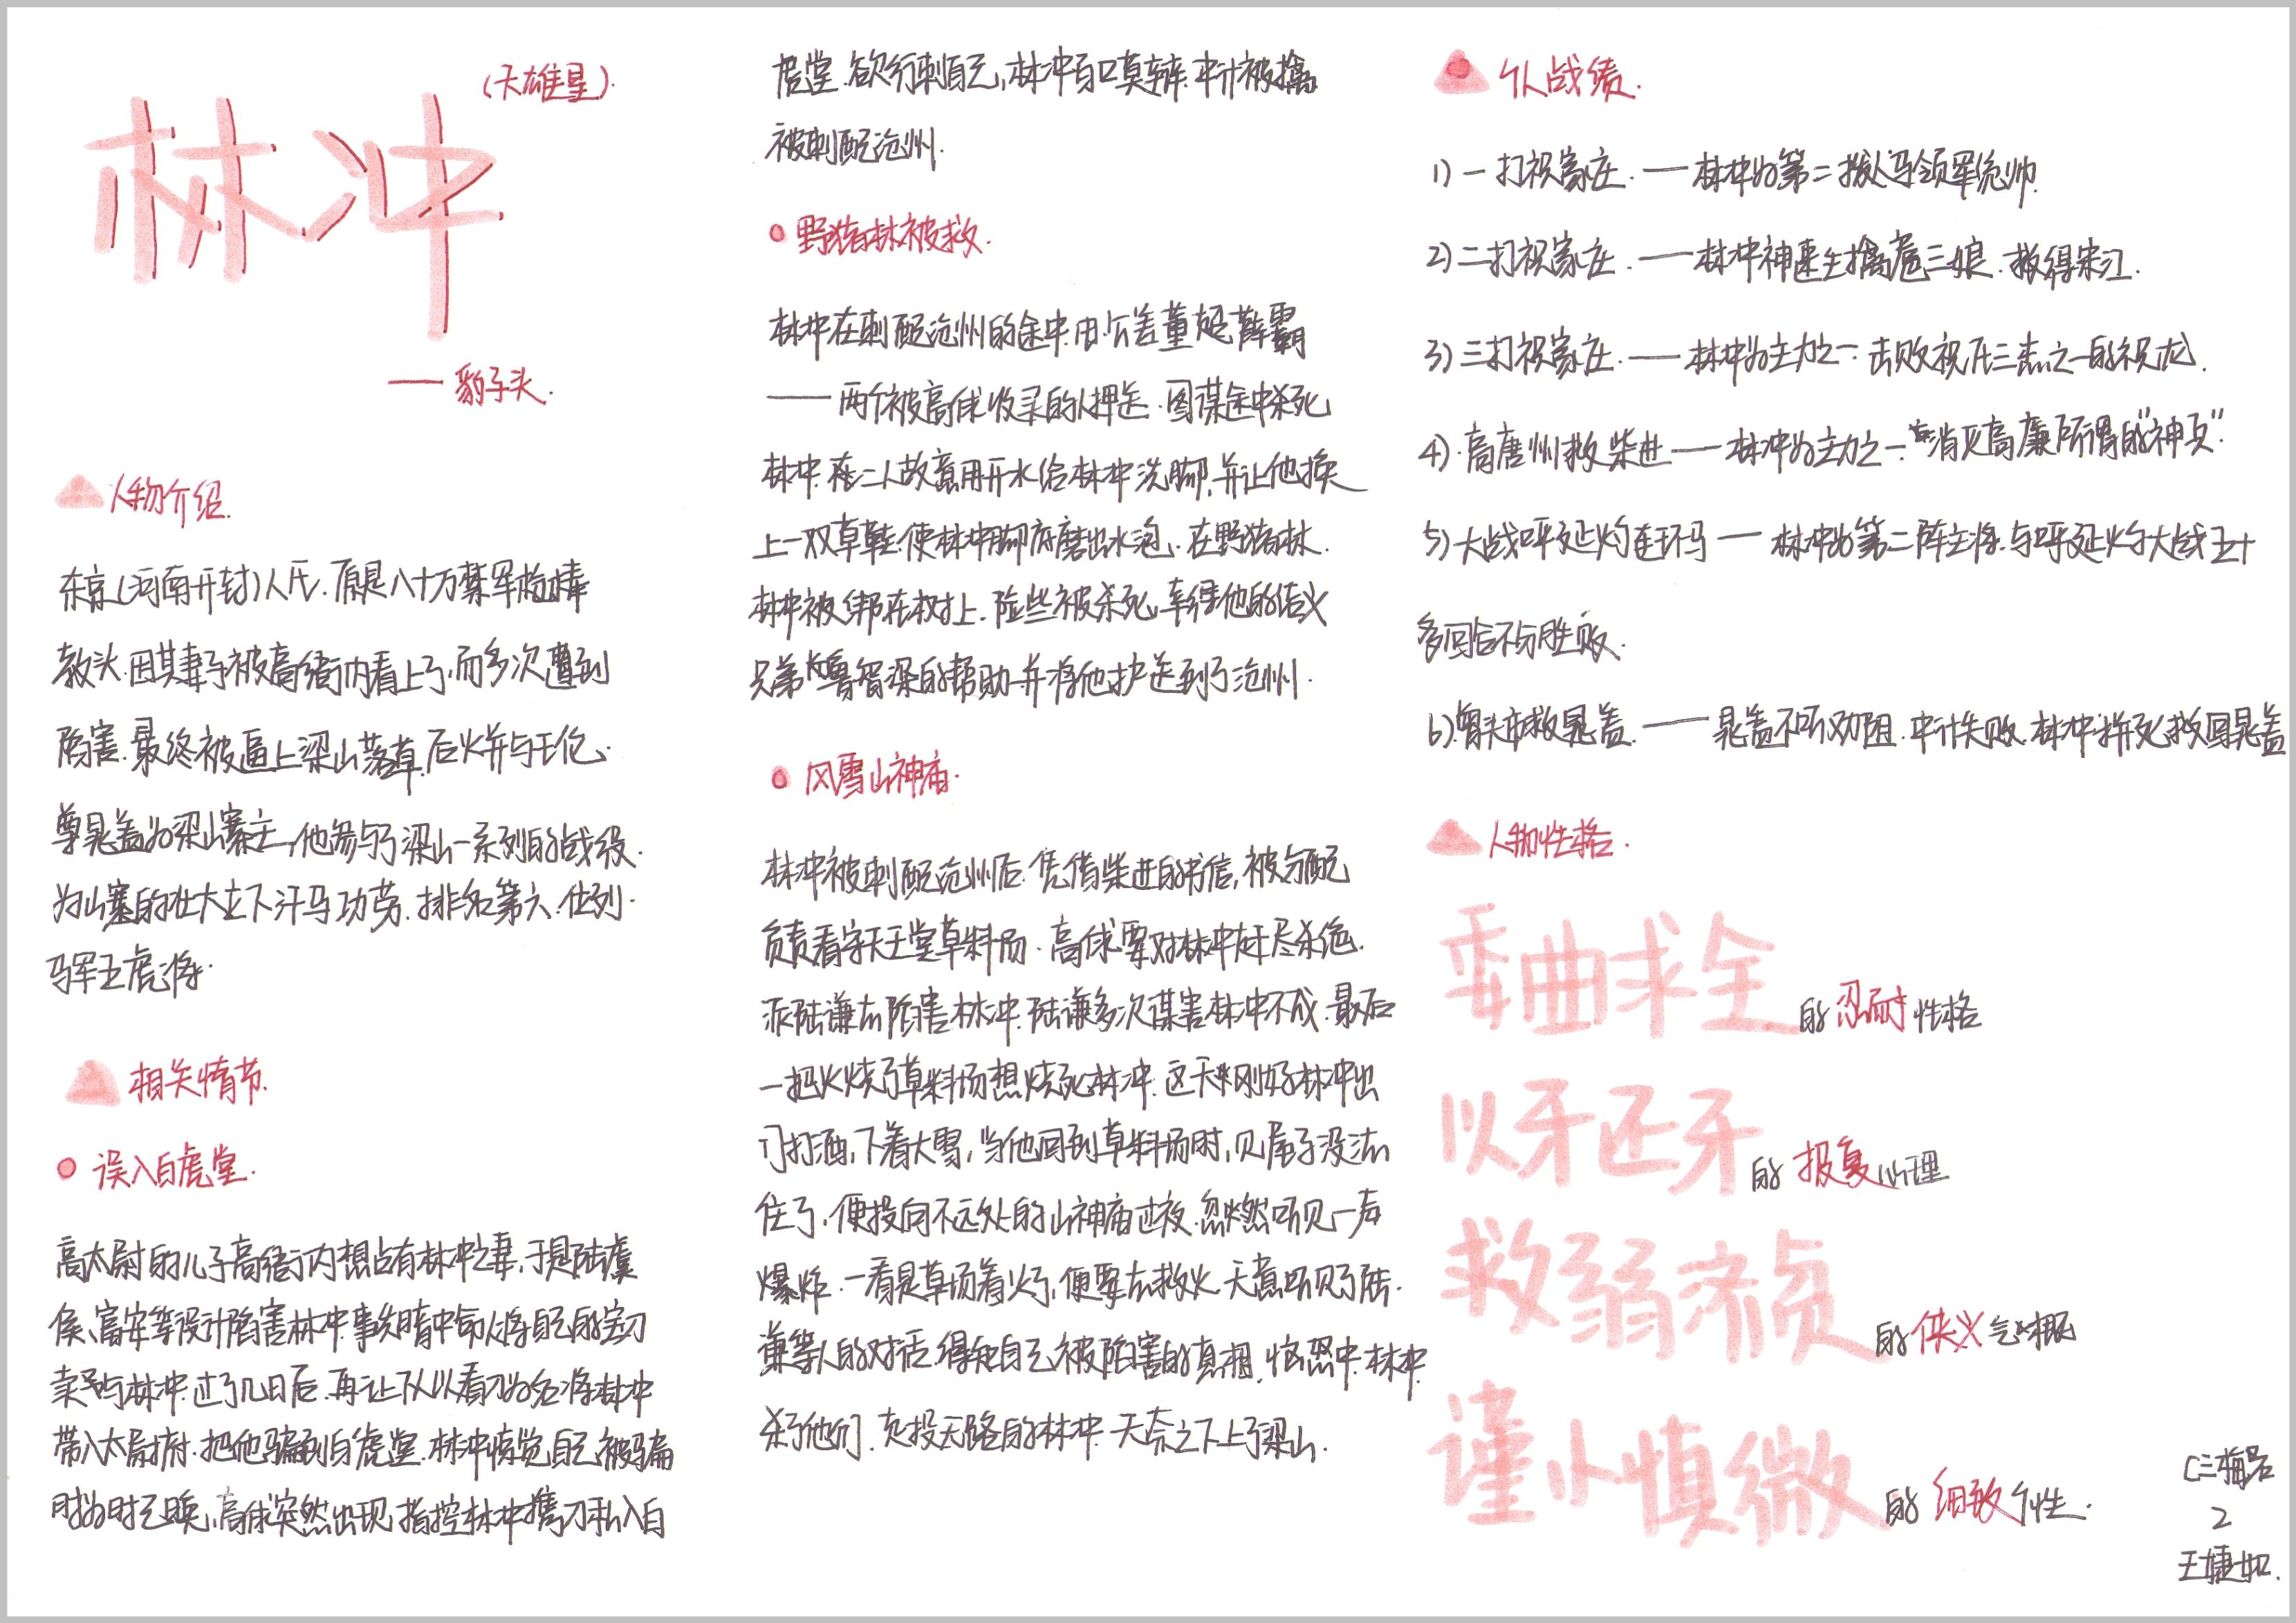 林冲
(天雄星).
—— 豹子头.
人物介绍.
东京(河南开封)人氏.原是八十万禁军枪棒
教头.因其妻子被高衙内看上了,而多次遭到
陷害.最终被逼上梁山落草.后火并与王伦.
尊晁盖为梁山寨主,他参与了梁山一系列的战役.
为山寨的壮大立下汗马功劳.排名第六.位列.
马军五虎将.
相关情节.
误入白虎堂.
高太尉的儿子高衙内想占有林冲之妻,于是陆虞
侯、富安等设计陷害林冲.事先暗中命人将自己的宝刀
卖予与林冲.过了几日后.再让下人以看刀为名将林冲
带入太尉府.把他骗到白虎堂.林冲惊觉自己被骗
时为时已晚,高俅突然出现,指控林冲携刀私入白
虎堂.欲行刺自己,林冲百口莫辩.中计被擒
被刺配沧州.
野猪林被救.
林冲在刺配沧州的途中.由公差董超薛霸
——两个被高俅收录的人押送.图谋途中杀死
林冲.在二人故意用开水给林冲洗脚,并让他换
上一双草鞋.使林冲脚底磨出水泡.在野猪林.
林冲被绑在树上.险些被杀死,幸得他的结义
兄弟鲁智深的帮助.并将他护送到了沧州.
风雪山神庙.
林冲被刺配沧州后.凭借柴进的书信,被分配
负责看守天王堂草料场.高俅要对林冲赶尽杀绝.
派陆谦去陷害林冲.陆谦多次谋害林冲不成.最后
一把火烧了草料场想烧死林冲.这天刚好林冲出
门打酒,下着大雪,当他回到草料场时,见屋子没法
住了,便投向不远处的山神庙过夜.忽然听见一声
爆炸.一看是草场着火了,便要去救火.无意听见了陆.
谦等人的对话.得知自己被陷害的真相.恼怒中.林冲.
杀了他们.走投无路的林冲.无奈之下上了梁山.
个人战绩.
1)一打祝家庄.——林冲为第二拨人马领军统帅.
2)二打祝家庄.——林冲神速生擒扈三娘.救得宋江.
3)三打祝家庄.——林冲为主力之一.击败祝氏三杰之一的祝龙.
4).高唐州救柴进——林冲为主力之一.消灭高廉所谓的"神兵".
5)大战呼延灼连环马——林冲为第二阵主将.与呼延灼大战五十
多回合不分胜败.
6).曾头市救晁盖.——晁盖不听劝阻.中计失败.林冲拼死救回晁盖
人物性格.
委曲求全的忍耐性格
以牙还牙的报复心理
救弱济贫的侠义气概
谨小慎微的细致个性.
2
王婕如.